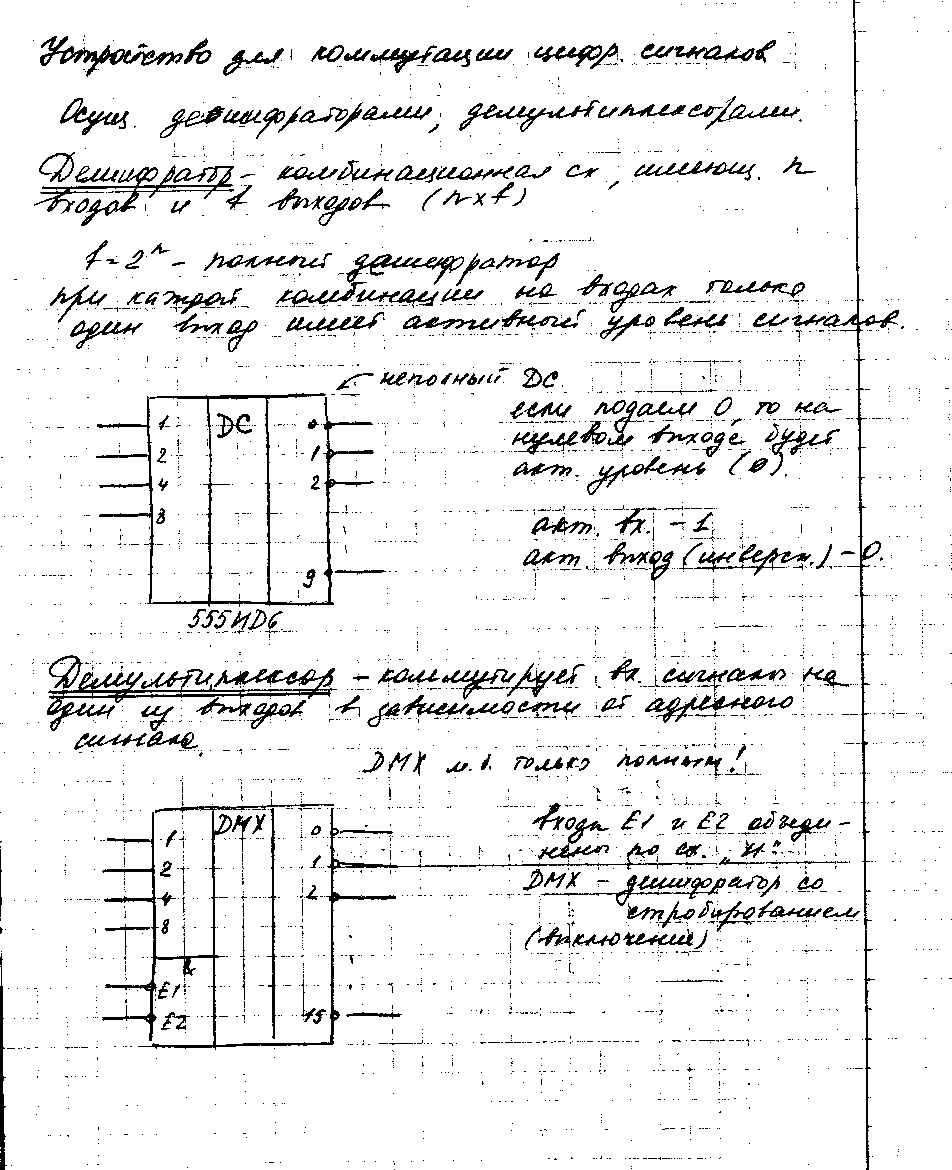 Устройство для коммутации цифр. сигналов
Осущ. дешифраторами, демультиплексорами.
Дешифратор - комбинационная сх, имеющ. n
входов и f выходов (n x f)
f = 2ⁿ - полный дешифратор
при каждой комбинации на входах только
один выход имеет активный уровень сигналов.
неполный DC
если подаем 0, то на
нулевом выходе будет
акт. уровень (0).
акт. вх. - 1
акт выход (инверсн.) - 0.
DC
1
2
4
8
0
1
2
9
555ИD6
Демультиплексор - коммутирует вх. сигналы на
один из выходов в зависимости от адресного
сигнала.
DMX м.б. только полным!
DMX
1
2
4
8
&
E1
E2
0
1
2
15
входы E1 и E2 объеди-
нены по сх. „И"
DMX - дешифратор со
стробированием
(выключение)